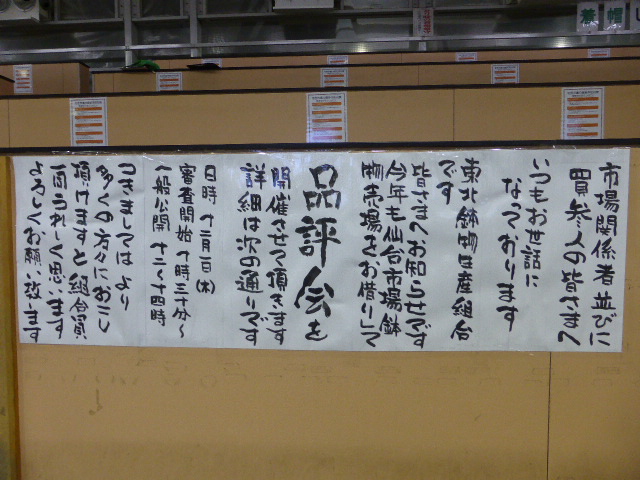 市場関係者並びに
買参人の皆さまへ
いつもお世話に
なっております
東北鉢物生産組合
です
皆さまへお知らせです
今年も仙台市場鉢
物売場をお借りして
品評会を
開催させて頂きます
詳細は次の通りです
日時 十二月一日(木)
審査開始 十時三十分〜
一般公開 十二〜十四時
つきましては より
多くの方々におこし
頂けますと組合員
一同うれしく思います
よろしくお願い致します